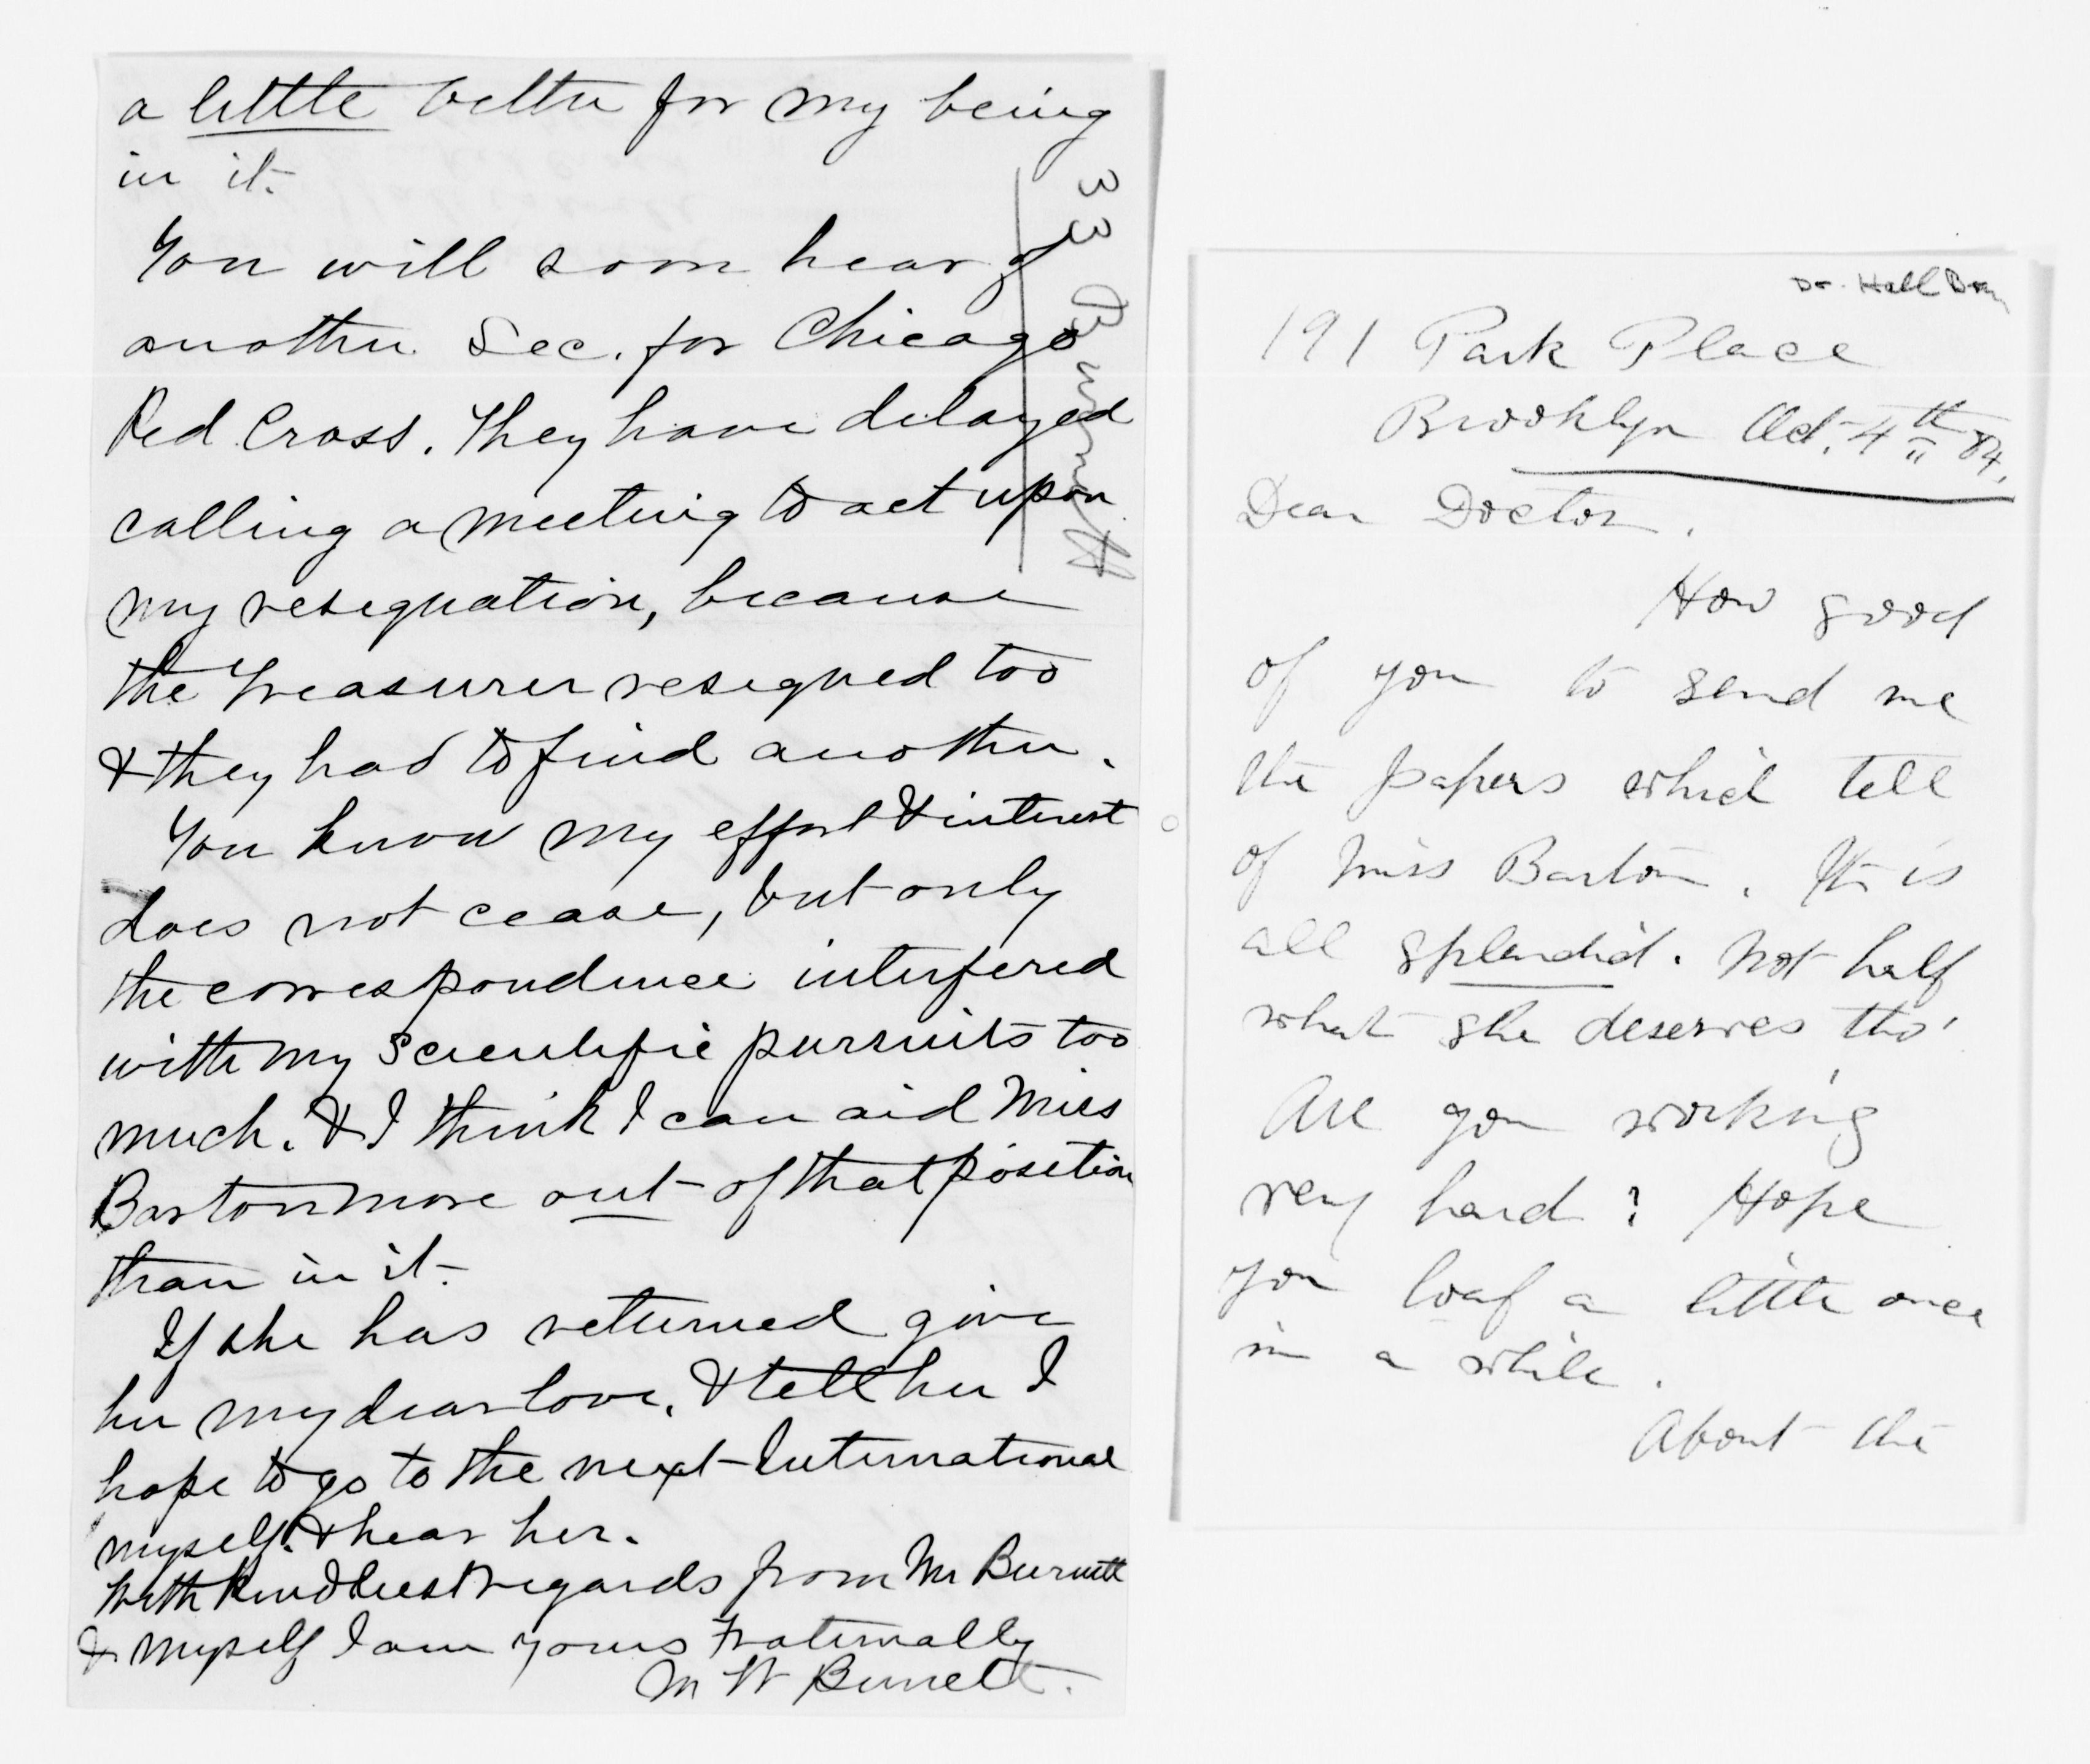 a little better for my being
in it.
You will soon hear of
another Sec. for Chicago
Red Cross. They have delayed
calling a meeting to act upon
my resignation, because
the Treasurer resigned too
& they had to find another.
You know my effort & interest
does not cease, but only
the correspondence interfered
with my Scientific pursuits too
much. & I think I can aid Miss
Barton more out of that position
than in it.
If she has returned give
her my dear love, & tell her I
hope to go to the next International
myself. & hear her.
With kindliest regards from Mr Burnett
& myself I am yours Fraternally
M W Burnett.
33 Burnett
Dr. Hall Brown
191 Park Place
Brooklyn Oct. 4th 84.
Dear Doctor.
How good
of you to send me
the papers which tell
of Miss Barton. It is
all splendid. Not half
what she deserves tho'
Are you working
very hard? Hope
you loaf a little once
in a while.
About the